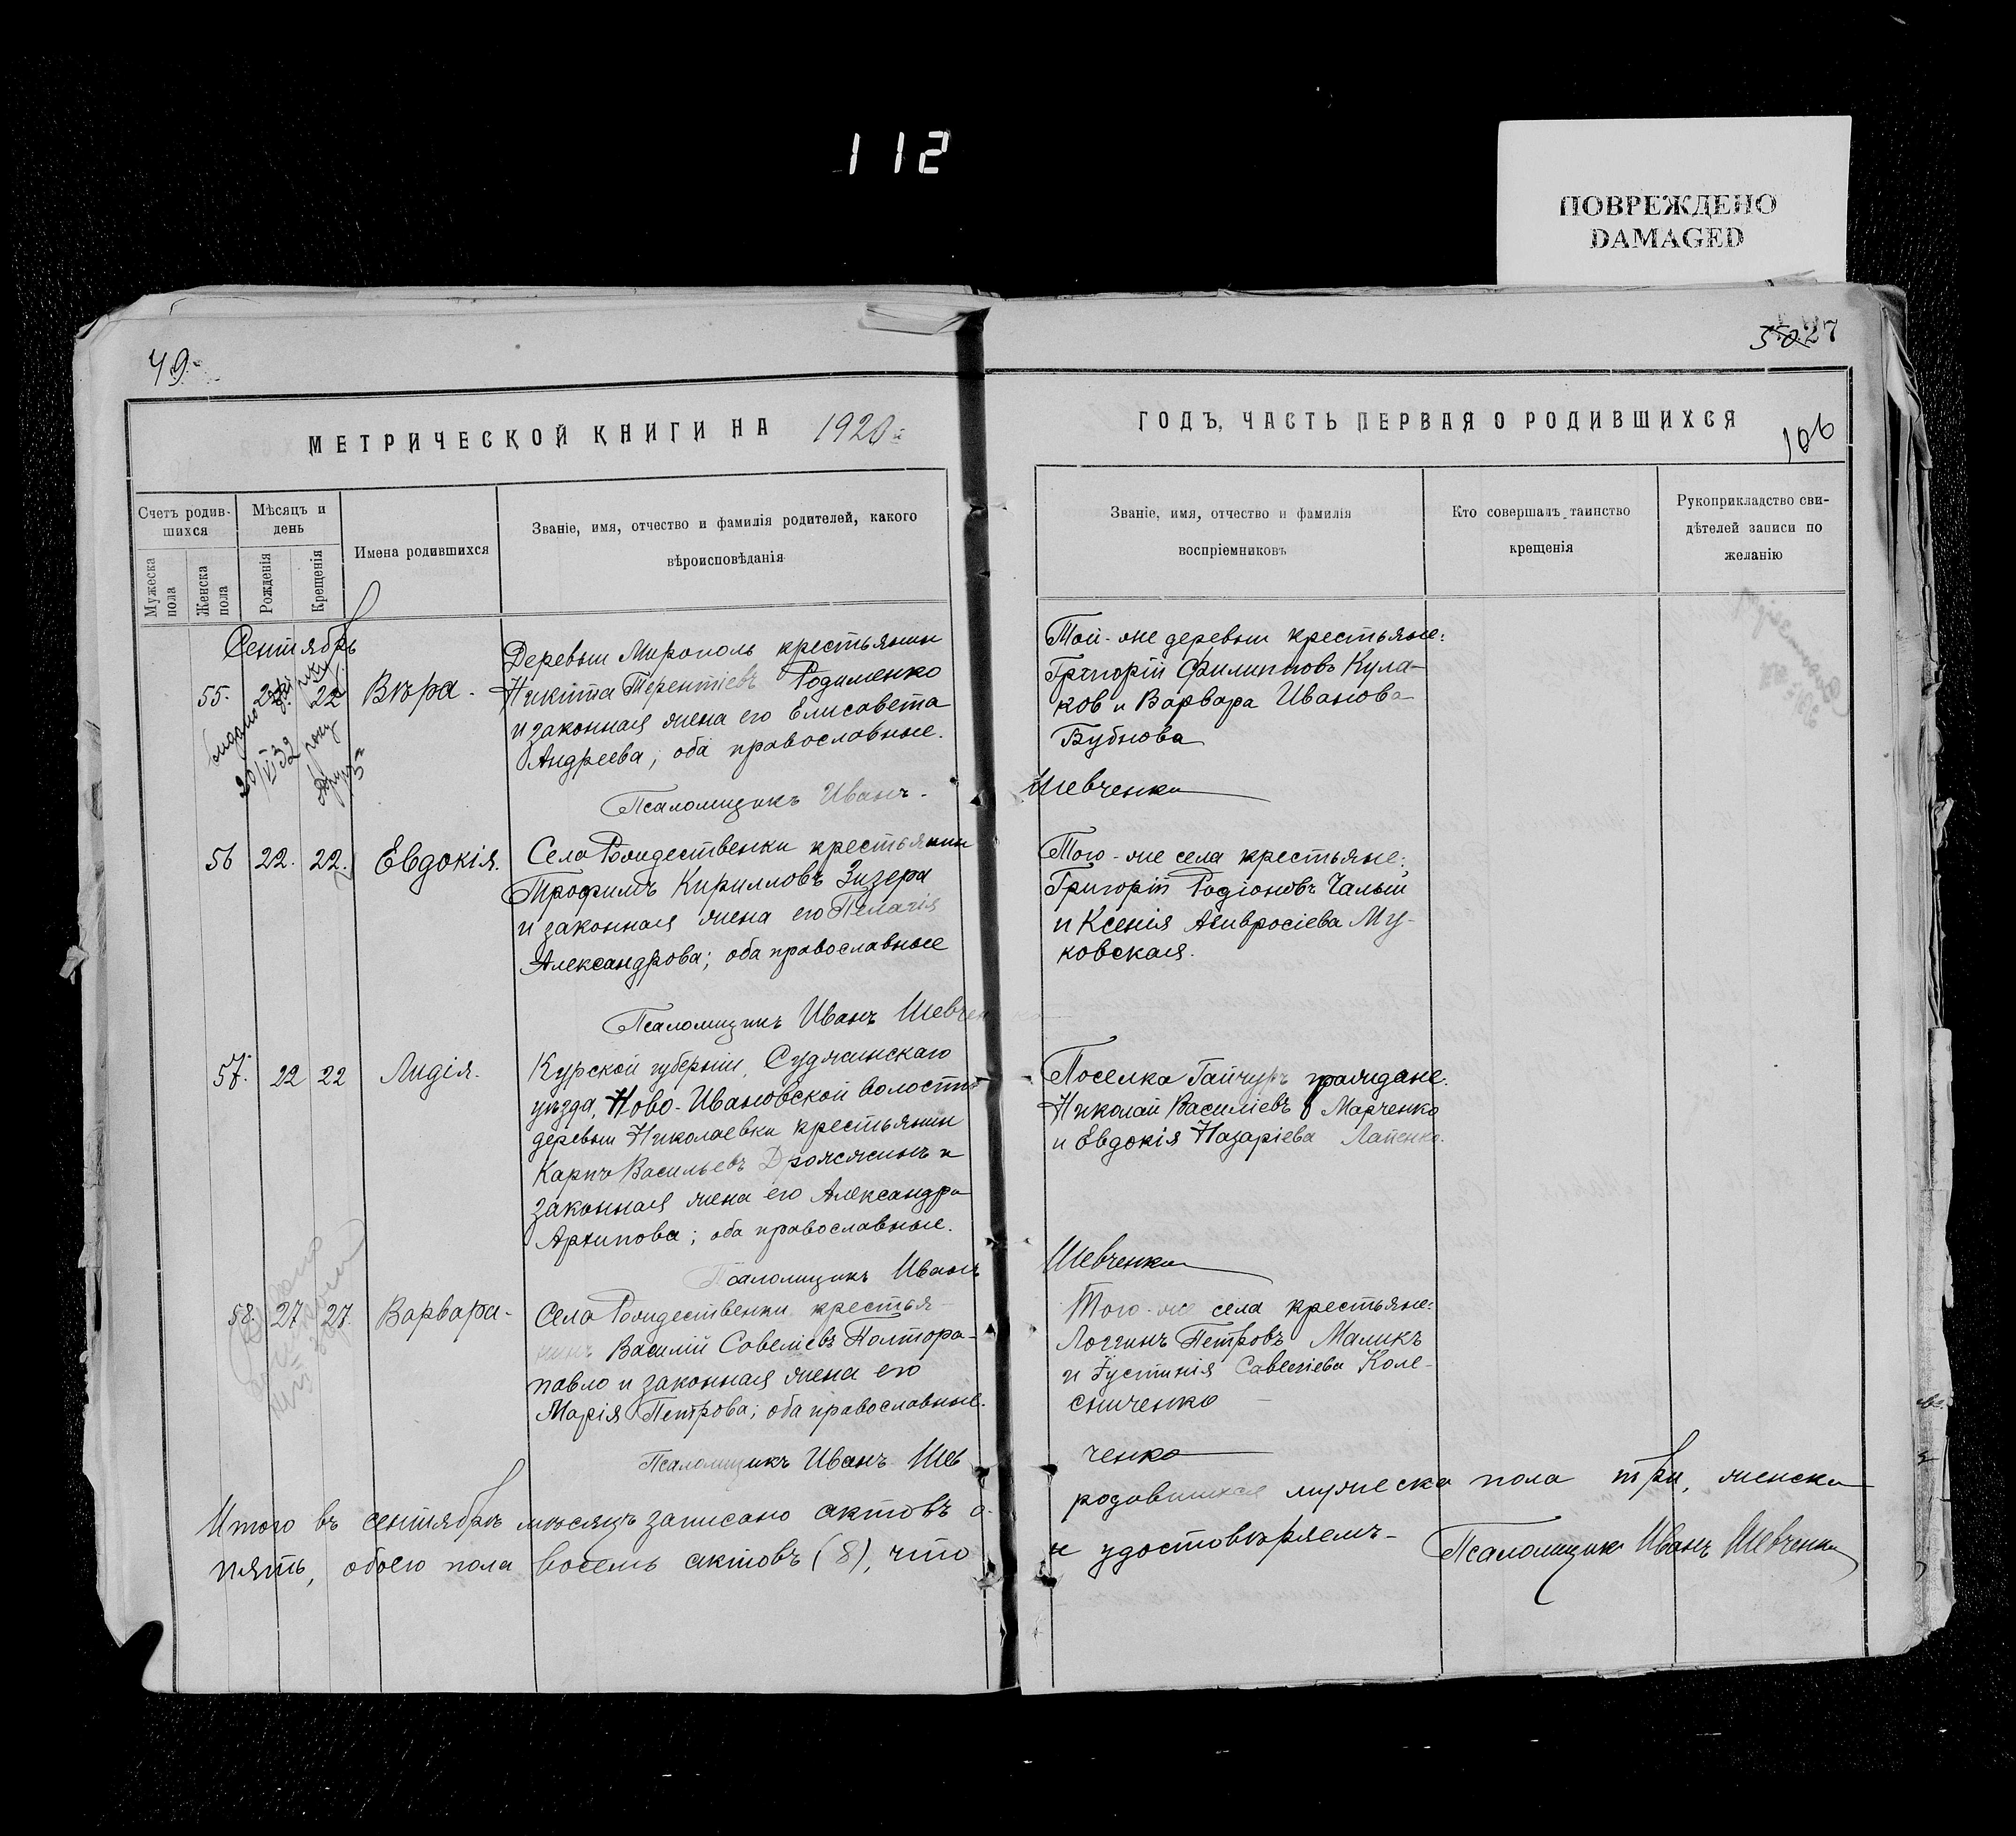 112
ПОВРЕЖДЕНО
DAMAGED
49.
50 27
МЕТРИЧЕСКОЙ КНИГИ НА 1920
ГОДЪ, ЧАСТЬ ПЕРВАЯ О РОДИВШИХСЯ
106
Счетъ родив-
шихся
Мужеска пола
Женска пола
Мѣсяцъ и
день
Рожденія
Крещенія
Имена родившихся
Званіе, имя, отчество и фамилія родителей, какого
вѣроисповѣданія
Званіе, имя, отчество и фамилія
воспріемниковъ
Кто совершалъ таинство
крещенія
Рукоприкладство сви-
дѣтелей записи по
желанію
Сентябрь
55. 22 22 Вѣра.
20/VI 32
Деревни Мирополь крестьянин
Никита Терентіевъ Родименко
и законная жена его Елисавета
Андреева; оба православные.
Той-же деревни крестьяне:
Григорій Филипповъ Кула-
ков и Варвара Иванова
Бубнова
Псаломщикъ Иванъ Шевченко
56 22. 22. Евдокія.
Села Рождественки крестьянин
Трофимъ Кирилловъ Зизера
и законная жена его Пелагія
Александрова; оба православные
Того-же села крестьяне:
Григорій Родіоновъ Чалый
и Ксенія Амвросіева Му-
ковская.
Псаломщикъ Иванъ Шевчен
57. 22 22 Лидія.
Курской губерніи, Суджанскаго
уѣзда, Ново-Ивановской волости
деревни Николаевки крестьянин
Карпъ Васильевъ и
законная жена его Александра
Архипова; оба православные.
Поселка Гайчуръ граждане.
Николай Василіевъ Марченко
и Евдокія Назаріева Лапенко.
Псаломщикъ Иванъ Шевченко
58. 27 27. Варвара-
Села Рождественки крестья-
нинъ Василій Савеліевъ Полтора-
павло и законная жена его
Марія Петрова; оба православные.
Того-же села крестьяне:
Логгинъ Петровъ Маликъ
и Іустинія Савеліева Коле-
сниченко
Псаломщикъ Иванъ Шев ченко
Итого въ сентябрѣ мѣсяцѣ записано актовъ о родившихся мужеска пола три, женска
пять, обоего пола восемь актовъ (8), что и удостовѣряемъ- Псаломщикъ Иванъ Шевченко